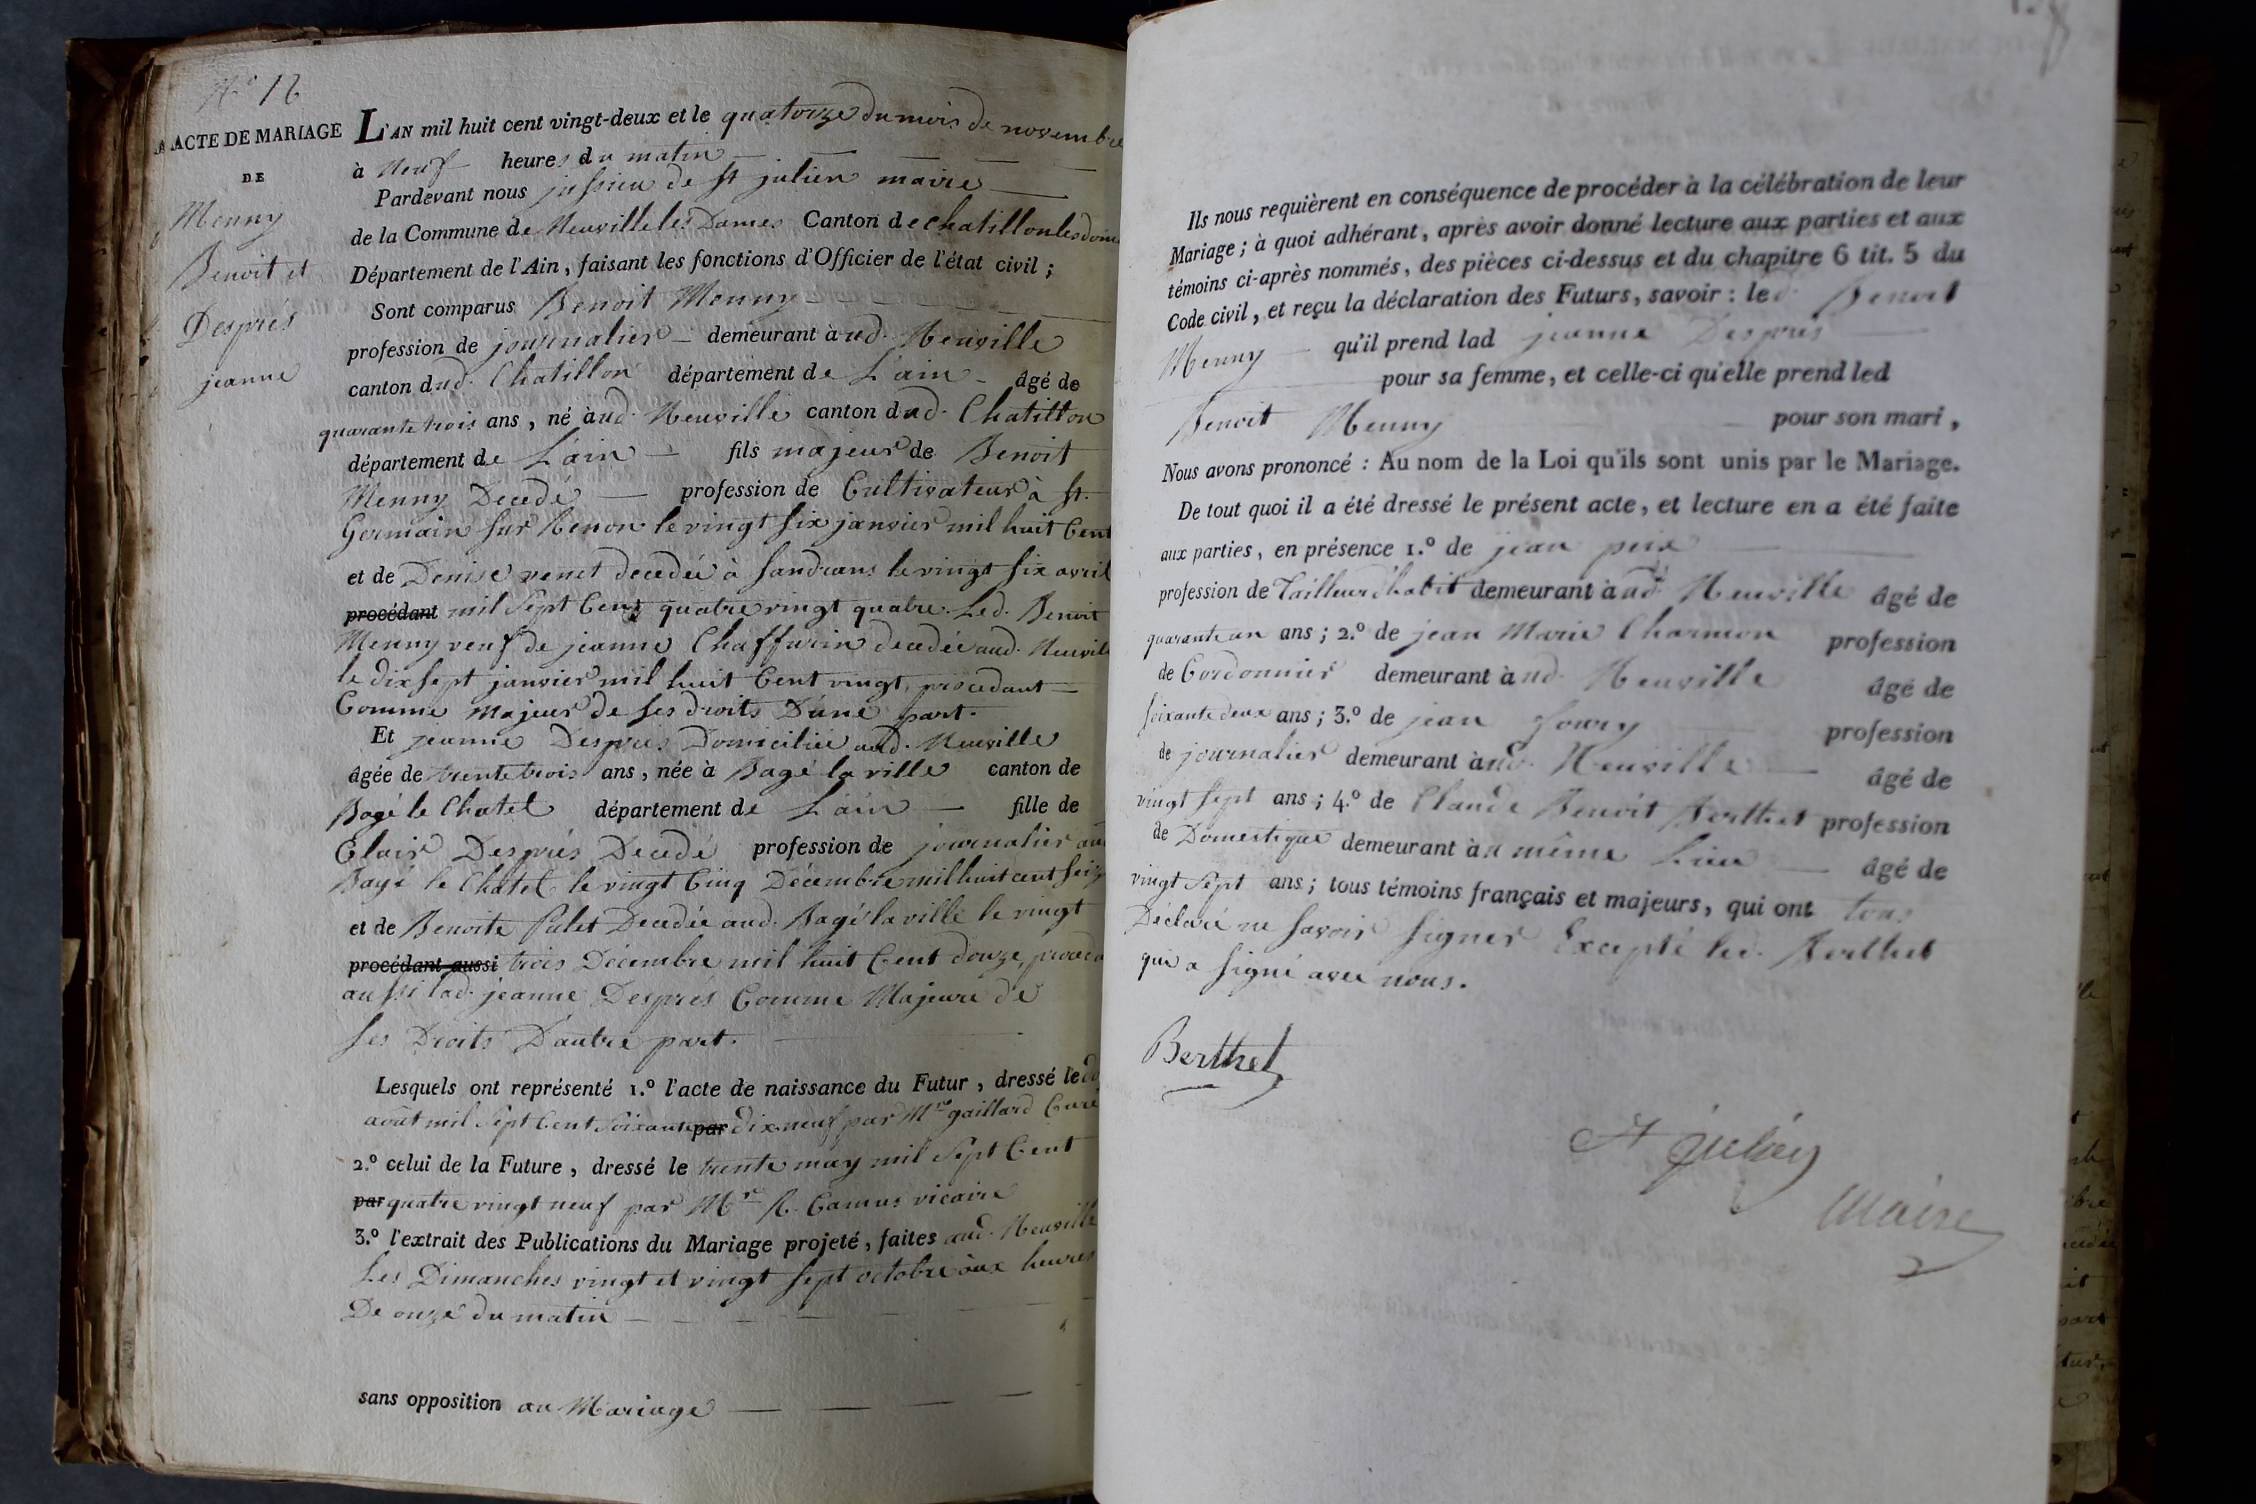 N.o 12
ACTE DE MARIAGE
DE
Menny
Benoit et
Després
jeanne
L'AN mil huit cent vingt-deux et le quatorze du mois de novembre
à Neuf heures du matin
Pardevant nous jussieu de St julien maire
de la Commune de Neuville les Dames Canton de chatillon les
Département de l'Ain, faisant les fonctions d'Officier de l'état civil ;
Sont comparus Benoit Menny
profession de journalier demeurant à ud. Neuville
canton dud. Chatillon département de L'ain âgé de
quarante trois ans, né à ud. Neuville canton dud. Chatillon
département de L'ain fils majeur de Benoit
Menny Decedé profession de Cultivateur à St.
Germain sur Renon le vingt six janvier mil huit Cent
et de Denise venet decedée à Sandrans le vingt six avril
procédant mil Sept Cent quatre vingt quatre. Led. Benoit
Menny veuf de jeanne Chaffurin decedée aud. Neuvill
le dix sept janvier mil huit Cent vingt, procedant
Comme Majeur de ses droits D'une part.
Et jeanne Després Domiciliée aud. Neuville
âgée de trente trois ans, née à Bagé la ville canton de
Bagé le Chatel département de L'ain fille de
Clair Després Decedé profession de journalier
Bagé le Chatel le vingt Cinq Décembre mil huit cent seiz
et de Benoite Pelet Decedée aud. Bagé la ville le vingt
procédant aussi trois Décembre mil huit Cent douze, proced
aussi lad. jeanne Després Comme Majeure de
ses Droits D'autre part.
Lesquels ont représenté 1.º l'acte de naissance du Futur, dressé le
août mil Sept Cent Soixante par dix neuf par Mre gaillard Curé
2.º celui de la Future, dressé le trente may mil Sept Cent
par quatre vingt neuf par Mr R. Camus vicaire
3.º l'extrait des Publications du Mariage projeté, faites aud. Neuville
Les Dimanches vingt et vingt sept octobre aux heures
De onze du matin
sans opposition au Mariage
Ils nous requièrent en conséquence de procéder à la célébration de leur
Mariage ; à quoi adhérant, après avoir donné lecture aux parties et aux
témoins ci-après nommés, des pièces ci-dessus et du chapitre 6 tit. 5 du
Code civil, et reçu la déclaration des Futurs, savoir : led. Benoit
Menny qu'il prend lad jeanne Després
pour sa femme, et celle-ci qu'elle prend led
Benoit Menny pour son mari,
Nous avons prononcé : Au nom de la Loi qu'ils sont unis par le Mariage.
De tout quoi il a été dressé le présent acte, et lecture en a été faite
aux parties, en présence 1.º de jean
profession de Tailleur d'habit demeurant à ud. Neuville âgé de
quarante un ans ; 2.º de jean Marie Charmon profession
de Cordonnier demeurant à ud. Neuville âgé de
soixante deux ans ; 3.º de jean profession
de journalier demeurant à ud. Neuville âgé de
vingt sept ans ; 4.º de Claude Benoit Berthet profession
de Domestique demeurant à u même Lieu âgé de
vingt sept ans ; tous témoins français et majeurs, qui ont tous
Déclaré ne savoir signer Excepté led. Berthet
qui a signé avec nous.
Berthet
St julien
Maire